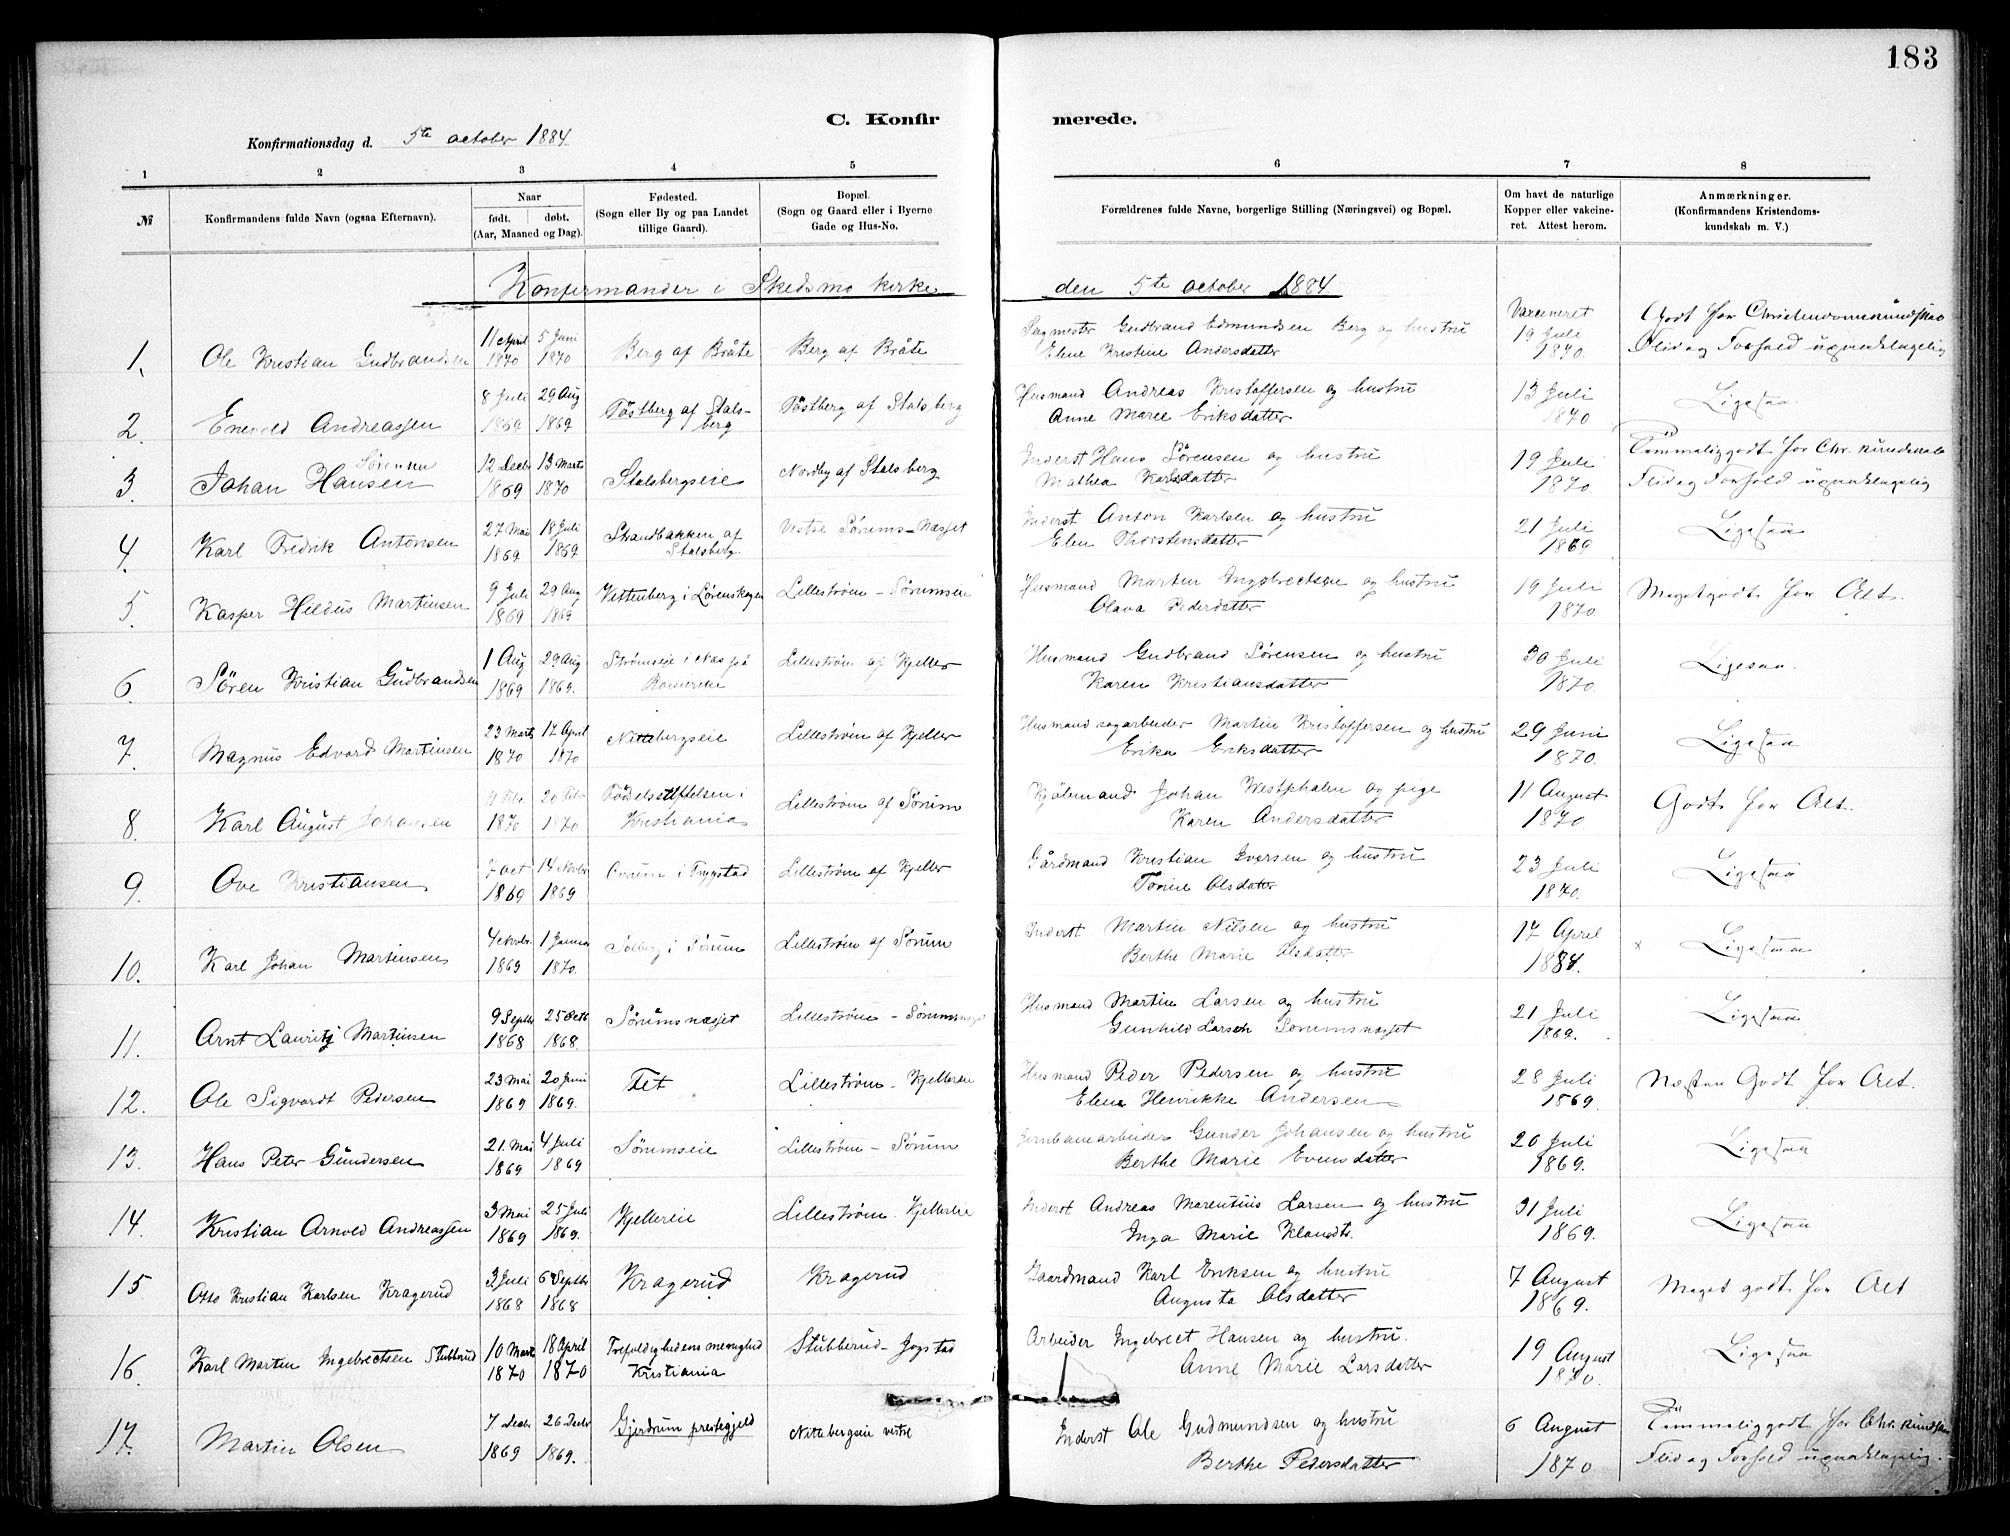 183
C. Konfirmerede.
Konfirmationsdag d. 5te october 1884
1 2 3 4 5 6 7 8
№
Konfirmandens fulde Navn (ogsaa Efternavn).
Naar
født. døbt.
(Aar, Maaned og Dag).
Fødested.
(Sogn eller By og paa Landet
tillige Gaard).
Bopæl.
(Sogn og Gaard eller i Byerne
Gade og Hus-No.
Forældrenes fulde Navne, borgerlige Stilling (Næringsvei) og Bopæl.
Om havt de naturlige
Kopper eller vakcine-
ret. Attest herom.
Anmærkninger.
(Konfirmandens Kristendoms-
kundskab m. V.)
Konfirmander i Skedsmo kirke den 5te october 1884
1. Ole Kristian Gudbrandsen 11 April 1870 5 Juni 1870 Berg af Bråte Berg af Bråte Sagmester Gudbrand Edmundsen Berg og hustru
Elene Kristine Andersdatter Vaccineret 19 Juli 1870. Godt for Christendomskundskab
Flid og Forhold upaaklagelig
2. Enevold Andreassen 8 Juli 1869 29 Aug 1869 Töstberg af Stalsberg Töstberg af Stalsberg Husmand Andreas Kristoffersen og hustru
Anne Marie Eriksdatter 13 Juli 1870 Ligesaa.
3. Johan Hansen Sörensen 12 Decbr 1869 13 Marts 1870 Stalsbergseie Nordby af Stalsberg Inderst Hans Sörensen og hustru
Mathea Karlsdatter 19 Juli 1870 Temmelig godt for Chr. kundskab
Flid og Forhold upaaklagelig
4. Karl Fredrik Antonsen 27 Mai 1869 18 Juli 1869 Strandbakken af Stalsberg. Vestre Sörums-Næsset Inderst Anton Karlsen og hustru
Elen Thorstensdatter 21 Juli 1869 Ligesaa
5. Kasper Hildus Martinsen 9 Juli 1869 29 Aug 1869 Vittenberg i Lörenskogen Lilleström - Sörumseie Husmand Martin Ingebrectsen og hustru
Olava Pedersdatter 19 Juli 1870 Meget godt for Alt.
6. Sören Kristian Gudbrandsen 1 Aug 1869 29 Aug 1869. Strömseie i Næs på Romerike Lilleström af Kjeller Husmand Gudbrand Sörensen og hustru
Karen Kristiansdatter 30 Juli 1870. Ligesaa.
7. Magnus Edvard Martinsen 23 Marts 1870 17 April 1870 Nittebergseie Lilleström af Kjeller Husmand sagarbeider Martin Kristoffersen og hustru
Erika Eriksdatter 29 Juni 1870. Ligesaa
8. Karl August Johansen 1870 20 Febr 1870 Födelsstiftelsen i Kristiania Lilleström af Sörum Kjölemand Johan Westphalen og pige
Karen Andersdatter 11 August 1870 Godt for Alt.
9. Ove Kristiansen 7 oct 1869 14 Novbr 1869 i Trygstad Lilleström af Kjeller Gårdmand Kristian Iversen og hustru
Olsdatter 23 Juli 1870. Ligesaa
10. Karl Johan Martinsen 4 Novbr 1869 1 Januar 1870. Solberg i Sörum Lilleström af Sörum Inderst Martin Nilsen og hustru
Berthe Marie Olsdatter 17 April 1884. × Ligesaa
11. Arnt Lauritz Martinsen 9 Septbr 1868 25 Octb 1868. Sörumsnæsset Lilleström - Sörumsnæsset Husmand Martin Larsen og hustru
Gunhild Larsen Sorumsnæsset 21 Juli 1869. Ligesaa
12. Ole Sigvardt Pedersen 23 Mai 1869 20 Juni 1869. Fet Lilleström - Kjellereie Husmand Peder Pedersen og hustru
Elene Henrikke Andersen 28 Juli 1869. Næsten Godt for Alt.
13. Hans Peter Gundersen 21. Mai 1869 4 Juli 1869 Sörumseie Lilleström - Sörum Jernbanearbeider Gunder Johansen og hustru
Berthe Marie Evensdatter 20 Juli 1869. Ligesaa
14. Kristian Arnold Andreassen 3 Mai 1869 25 Juli 1869. Kjellereie Lilleström. Kjellereie Inderst Andreas Marentius Larsen og hustru
Inga Marie 31 Juli 1869. Ligesaa
15 Otto Kristian Karlsen Kragerud 3 Juli 1868 6 Septbr 1868 Kragerud Kragerud Gaardmand Karl Eriksen og hustru
Augusta Olsdatter 7 August 1869. Meget godt for Alt
16. Karl Martin Ingebrectsen Stubberud 10 Mart 1870 18 April 1870 Trefoldighedens menighed Kristiania Stubberud - Jogstad Arbeider Ingebrect Hansen og hustru.
Anne Marie Larsdatter 19 August 1870. Ligesaa
17. Martin Olsen 7 Decbr 1869 26 Decbr 1869. Gjerdrum prestegjeld Nittebergseie vestre Inderst Ole Gudmundsen og hustru
Berthe Pedersdatter 6 August 1870 Temmelig godt for Chr. kundskab
Flid og Forhold upaaklagelig.